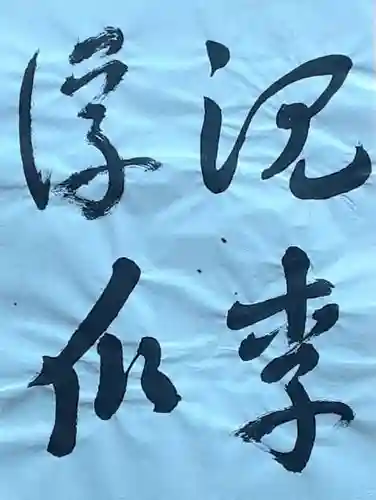 沉李
浮瓜